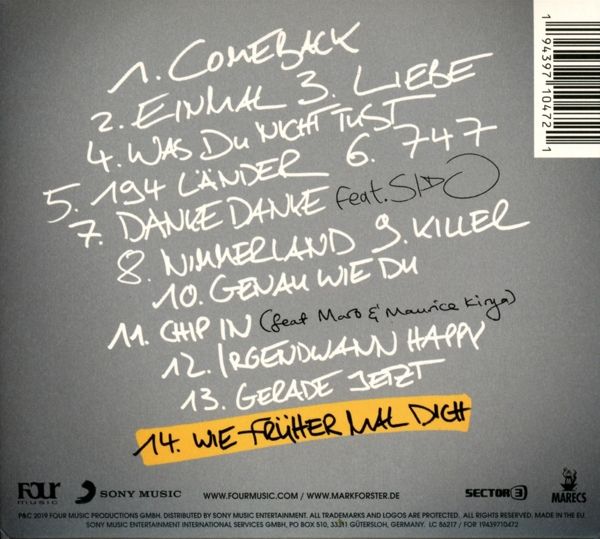 1. COMEBACK
2. EINMAL 3. LIEBE
4. WAS DU NICHT TUST
5. 194 LÄNDER 6. 747
7. DANKE DANKE feat. SIDO
8. NIMMERLAND 9. KILLER
10. GENAU WIE DU
11. CHIP IN (feat Maro & Maurice Kirya)
12. IRGENDWANN HAPPY
13. GERADE JETZT
14. WIE FRÜHER MAL DICH
1 94397 10472 1
Four music
SONY MUSIC
WWW.FOURMUSIC.COM / WWW.MARKFORSTER.DE
SECTOR 3
MARECS
P&C 2019 FOUR MUSIC PRODUCTIONS GMBH. DISTRIBUTED BY SONY MUSIC ENTERTAINMENT. ALL TRADEMARKS AND LOGOS ARE PROTECTED. ALL RIGHTS RESERVED. MADE IN THE EU.
SONY MUSIC ENTERTAINMENT INTERNATIONAL SERVICES GMBH, PO BOX 510, 33311 GÜTERSLOH, GERMANY. LC 86217 / FOR 19439710472